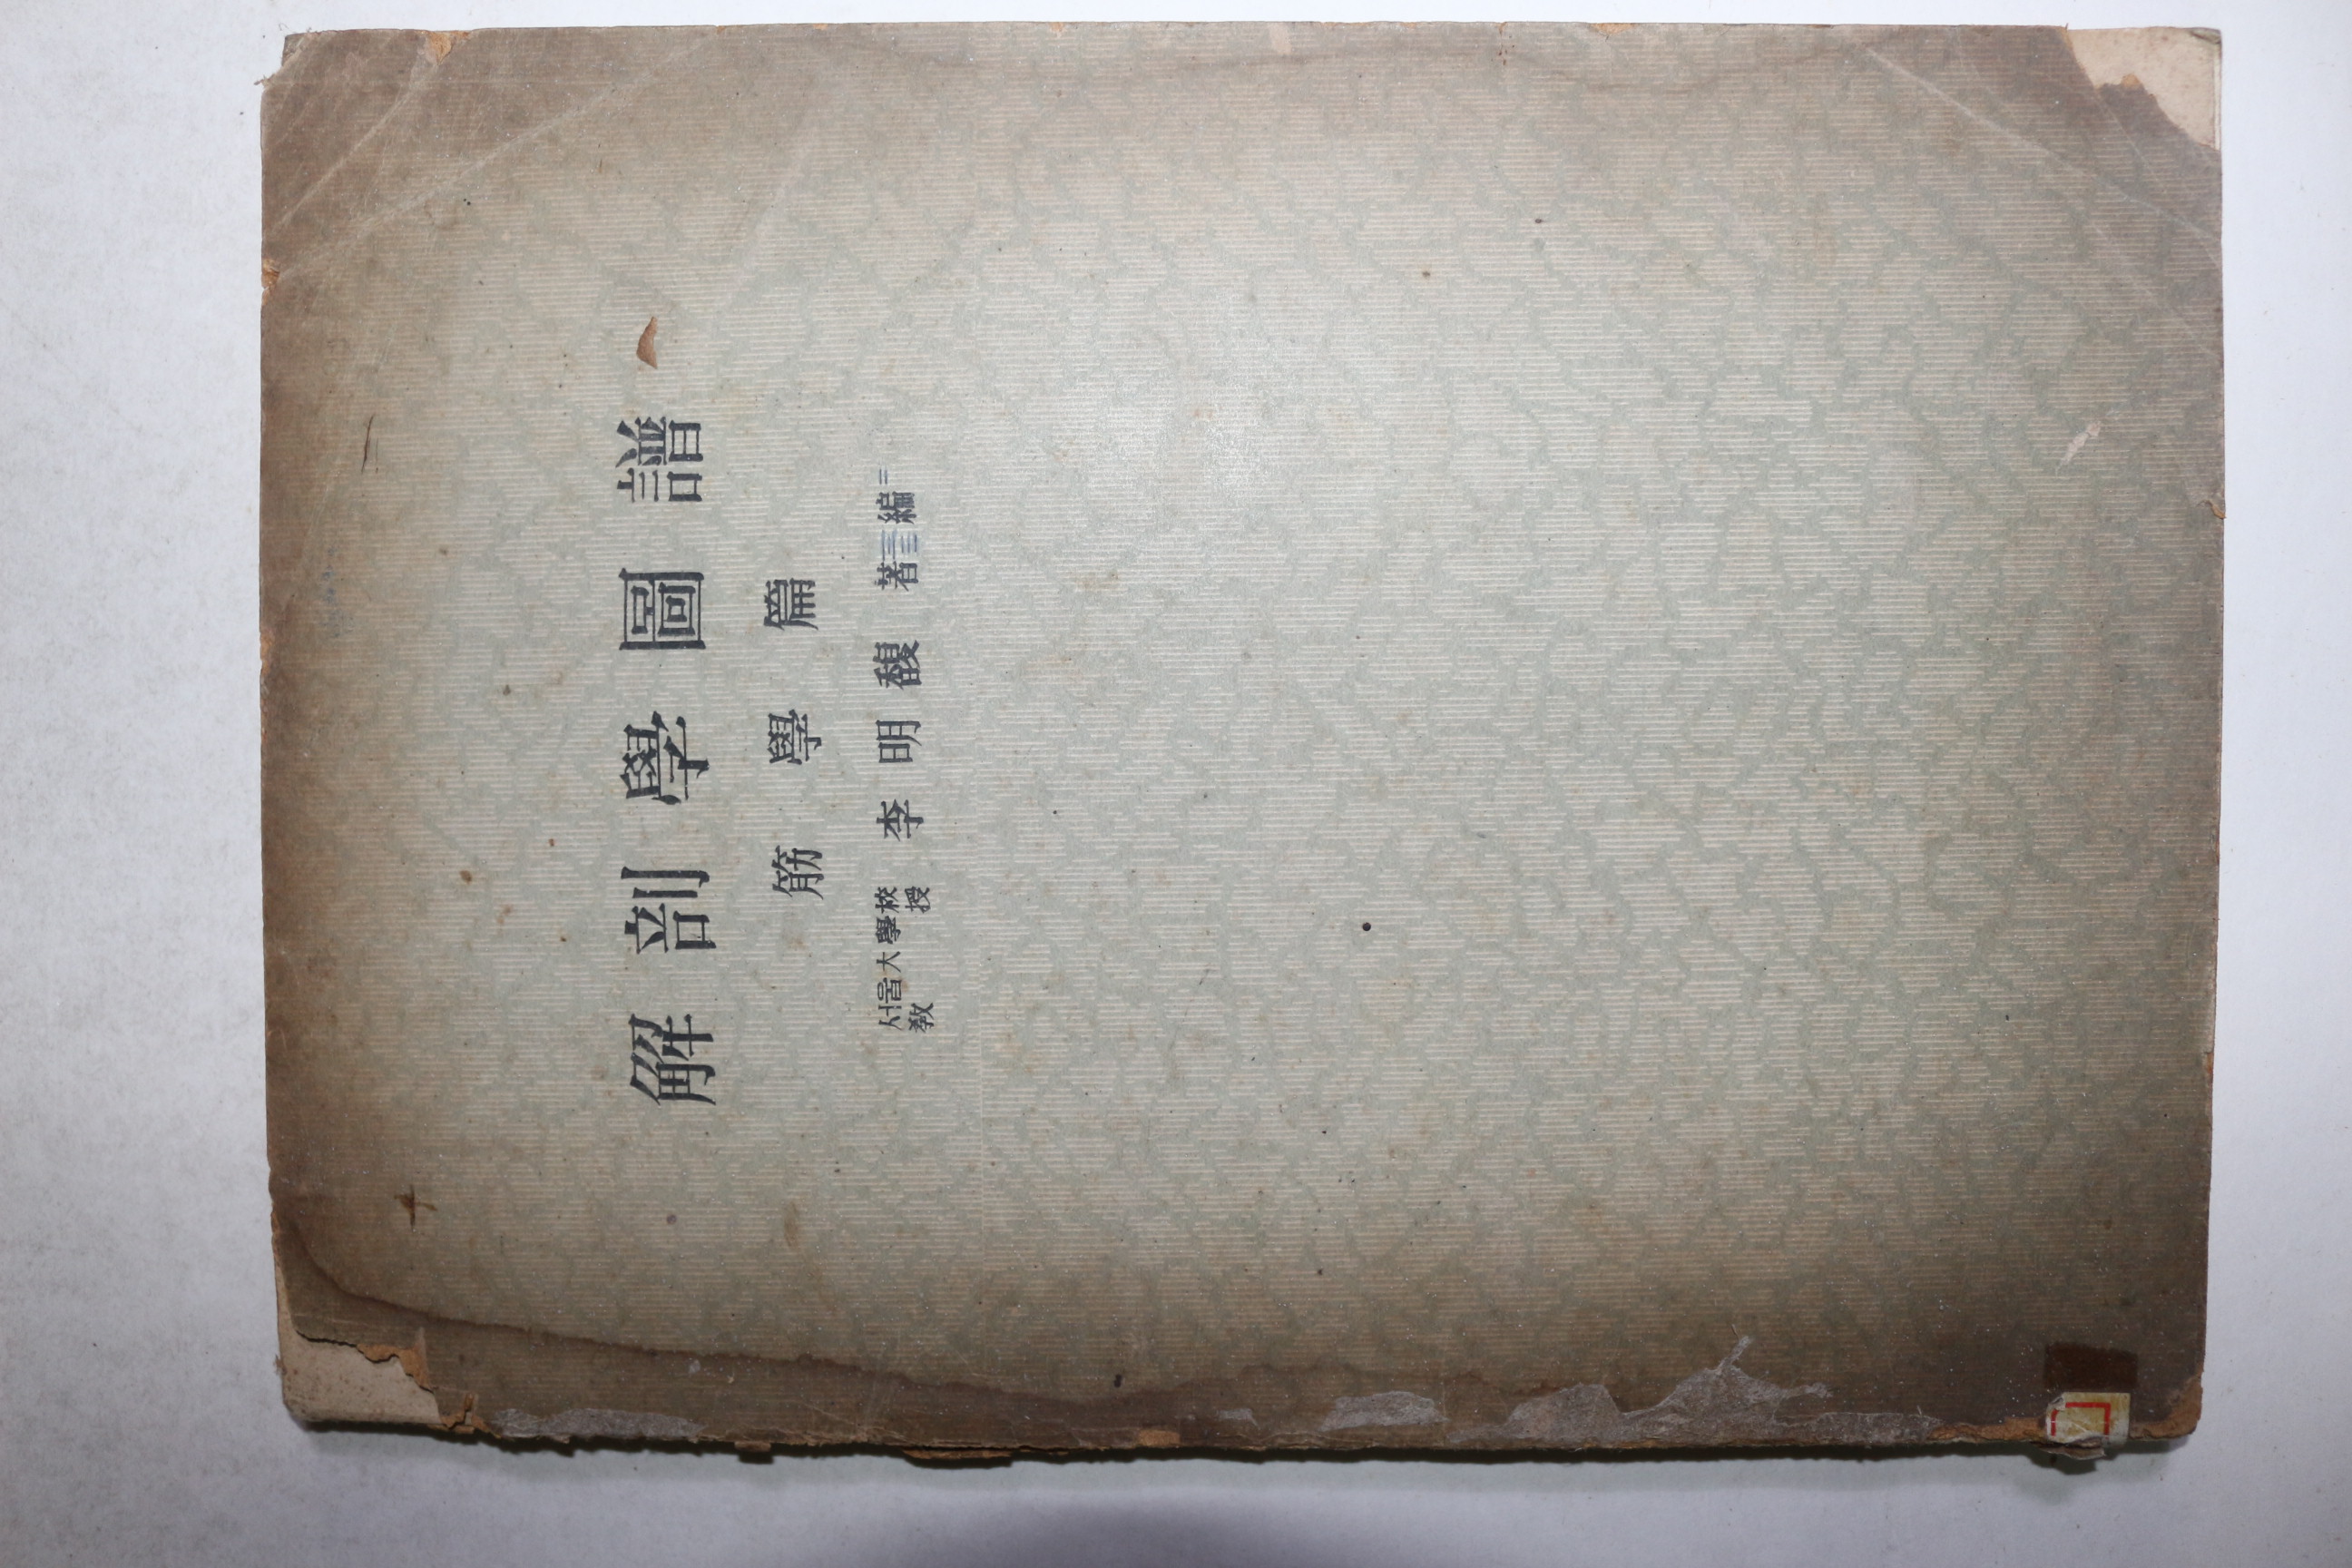 解剖學圖譜
筋學篇
서울大學校
敎授
李明馥 著 編